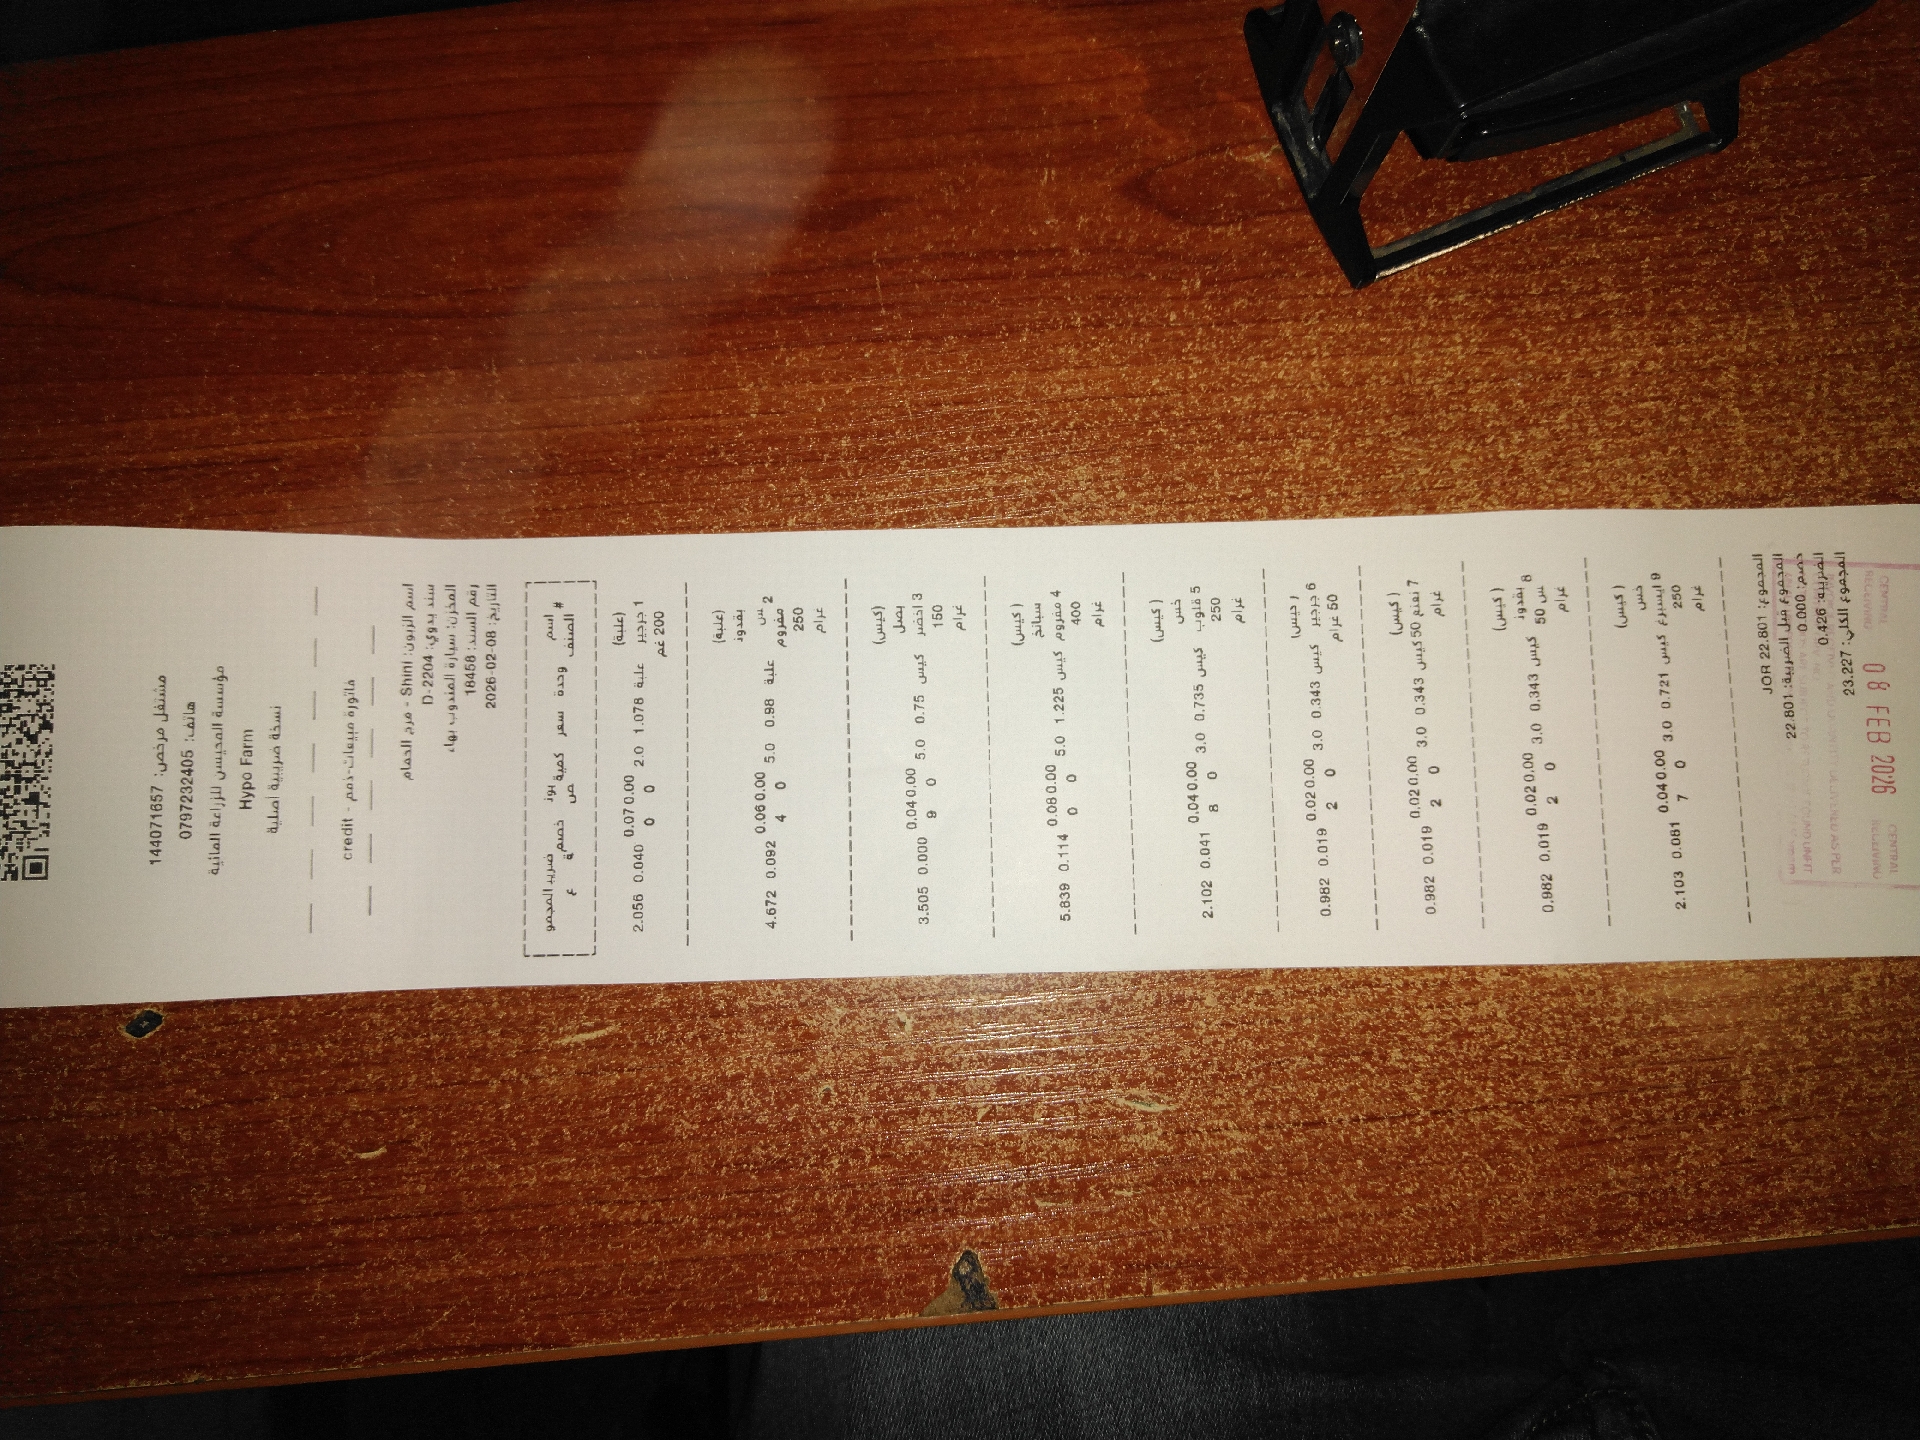 مشتغل مرخص: 144071657
هاتف: 0797232405
مؤسسة المحيسن للزراعة المائية
Hypo Farm
نسخة ضريبية أصلية
فاتورة مبيعات-ذمم - credit
اسم الزبون: Shini - مرج الحمام
سند يدوي: D-2204
المخزن: سيارة المندوب بهاء
رقم السند: 18458
التاريخ: 2026-02-08
# اسم وحدة سعر كمية بونـ خصمـ ضريبـ المجمو
الصنف ص ة ع
1 جرجير علبة 1.078 2.0 0.00 0.07 0.040 2.056
(علبة)
200 غم 0 0
(علبة)
بقدونـ
2 س علبة 0.98 5.0 0.00 0.06 0.092 4.672
مفروم 0 4
250
غرام
(كيس)
بصل
3 اخضر كيس 0.75 5.0 0.00 0.04 0.000 3.505
150 0 9
غرام
(كيس)
سبانخ
4 مفروم كيس 1.225 5.0 0.00 0.08 0.114 5.839
400 0 0
غرام
(كيس)
خس
5 قلوب كيس 0.735 3.0 0.00 0.04 0.041 2.102
250 0 8
غرام
6 جرجير كيس 0.343 3.0 0.00 0.02 0.019 0.982
50 غرام 0 2
(كيس)
7 نعنع 50 كيس 0.343 3.0 0.00 0.02 0.019 0.982
غرام 0 2
(كيس)
8 بقدونـ
س 50 كيس 0.343 3.0 0.00 0.02 0.019 0.982
غرام 0 2
(كيس)
خس
9 ايسبرغ كيس 0.721 3.0 0.00 0.04 0.081 2.103
250 0 7
غرام
المجموع: 22.801 JOR
المجموع قبل الضريبة: 22.801
خصم: 0.000
الضريبة: 0.426
المجموع الكلي: 23.227
CENTRAL
RECEIVING
08 FEB 2026
CENTRAL
RECEIVING